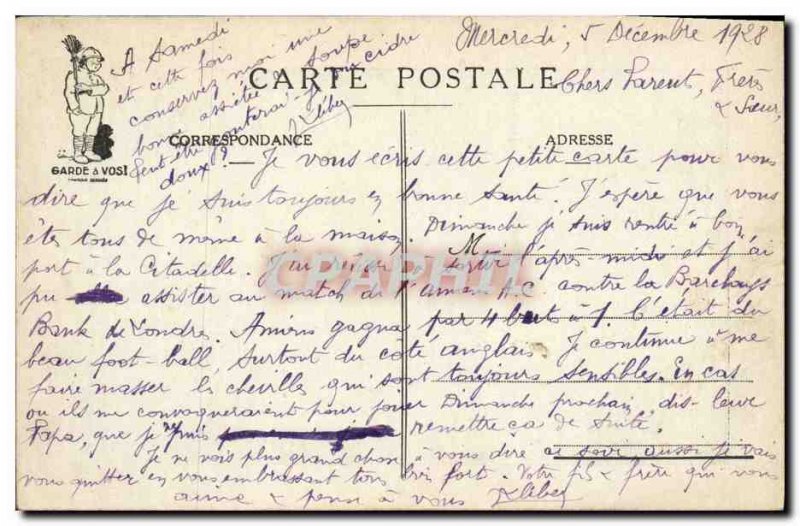 Mercredi, 5 Décembre 1928
CARTE POSTALE
Chers Parent, Frère
& Sœur,
CORRESPONDANCE
ADRESSE
GARDE à VOS!
Je vous écris cette petite carte pour vous
dire que je suis toujours en bonne santé. J'espère que vous
êtes tous de même à la maison. Dimanche je suis rentré à bon
port à la Citadelle. J'ai sortir l'après midi et j'ai
pu assister au match de l'Amiens A.C contre la Barclays
Bank de Londre. Amiens gagna par 4 buts à 1. C'était du
beau foot-ball, surtout du côté anglais. Je continue à me
faire masser les chevilles qui sont toujours sensibles. En cas
ou ils me convoqueraient pour jouer Dimanche prochain, dis-leur
Papa, que je puis remettre ça de suite.
Je ne vois plus grand chose à vous dire ce soir aussi je vais
vous quitter en vous embrassant tous très fort. Votre fils & frère qui vous
aime & pense à vous Kléber
A Samedi
et cette fois
conservez moi une
bonne assiettée de soupe.
Peut être cidre
doux?
Kléber
CPAPHIL